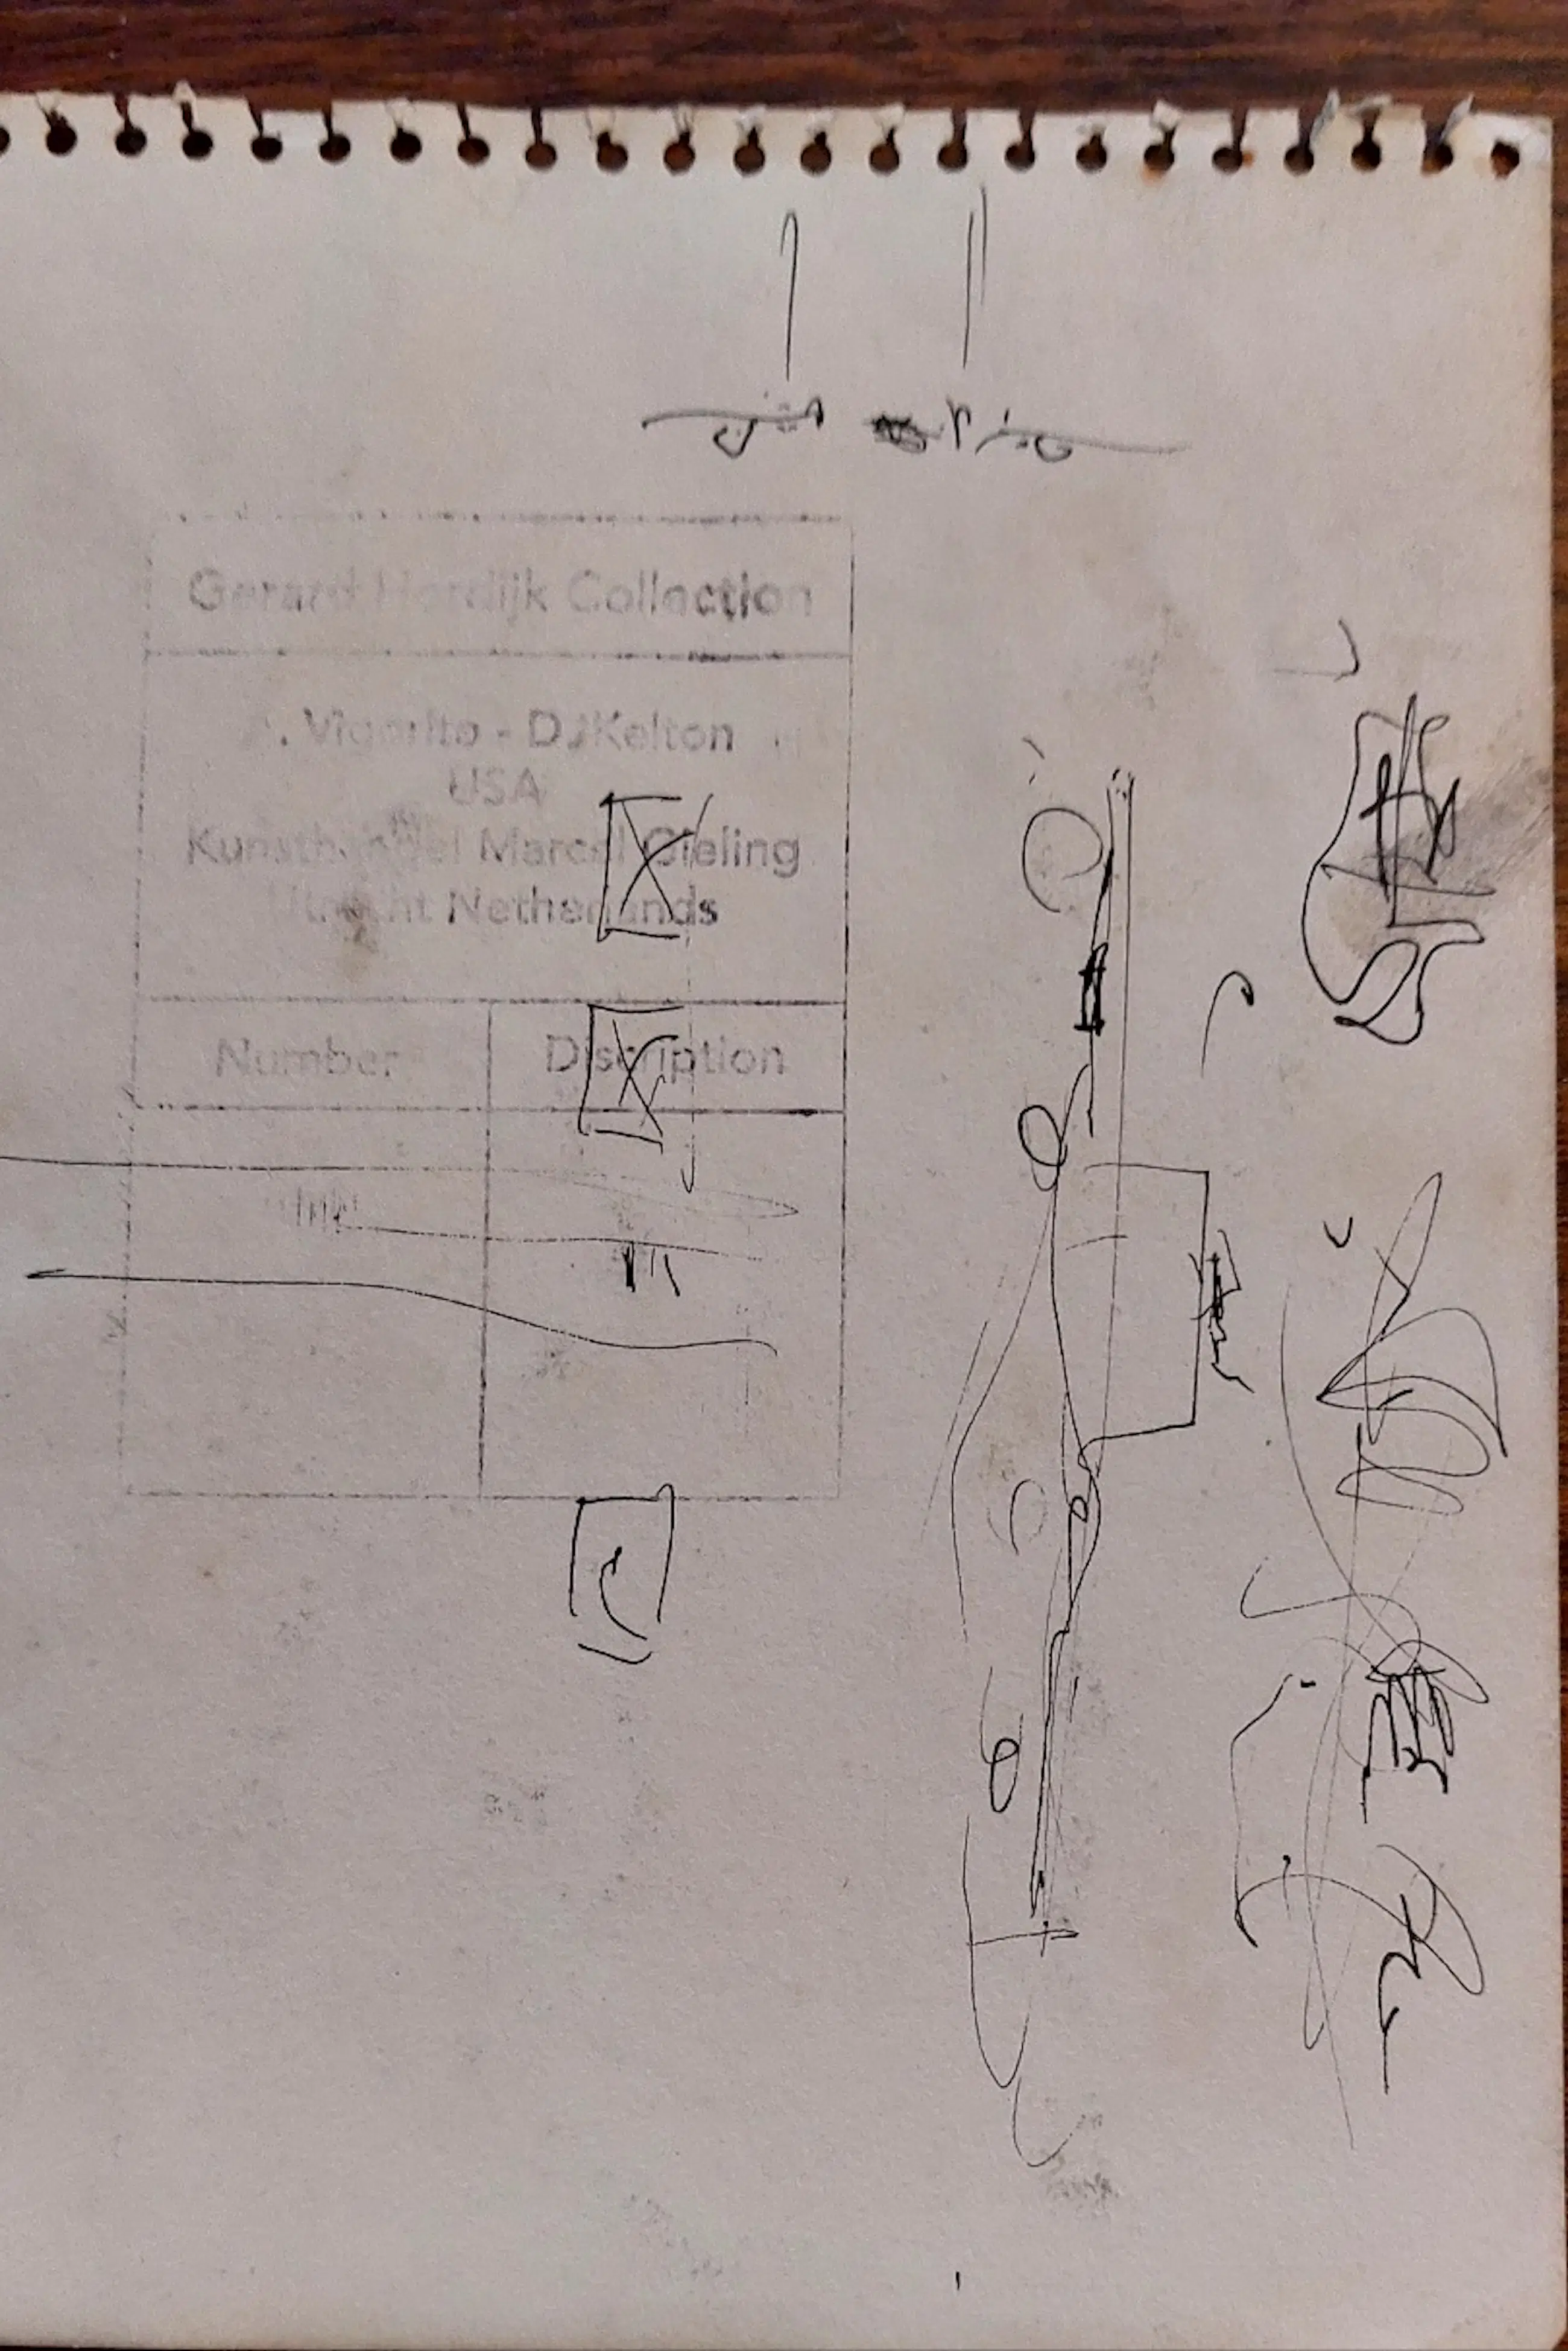 Gerard Hordijk Collection
A. Vigorito - DJKelton
USA
Kunsthandel Marcel Gieling
Utrecht Netherlands
Number
Discription